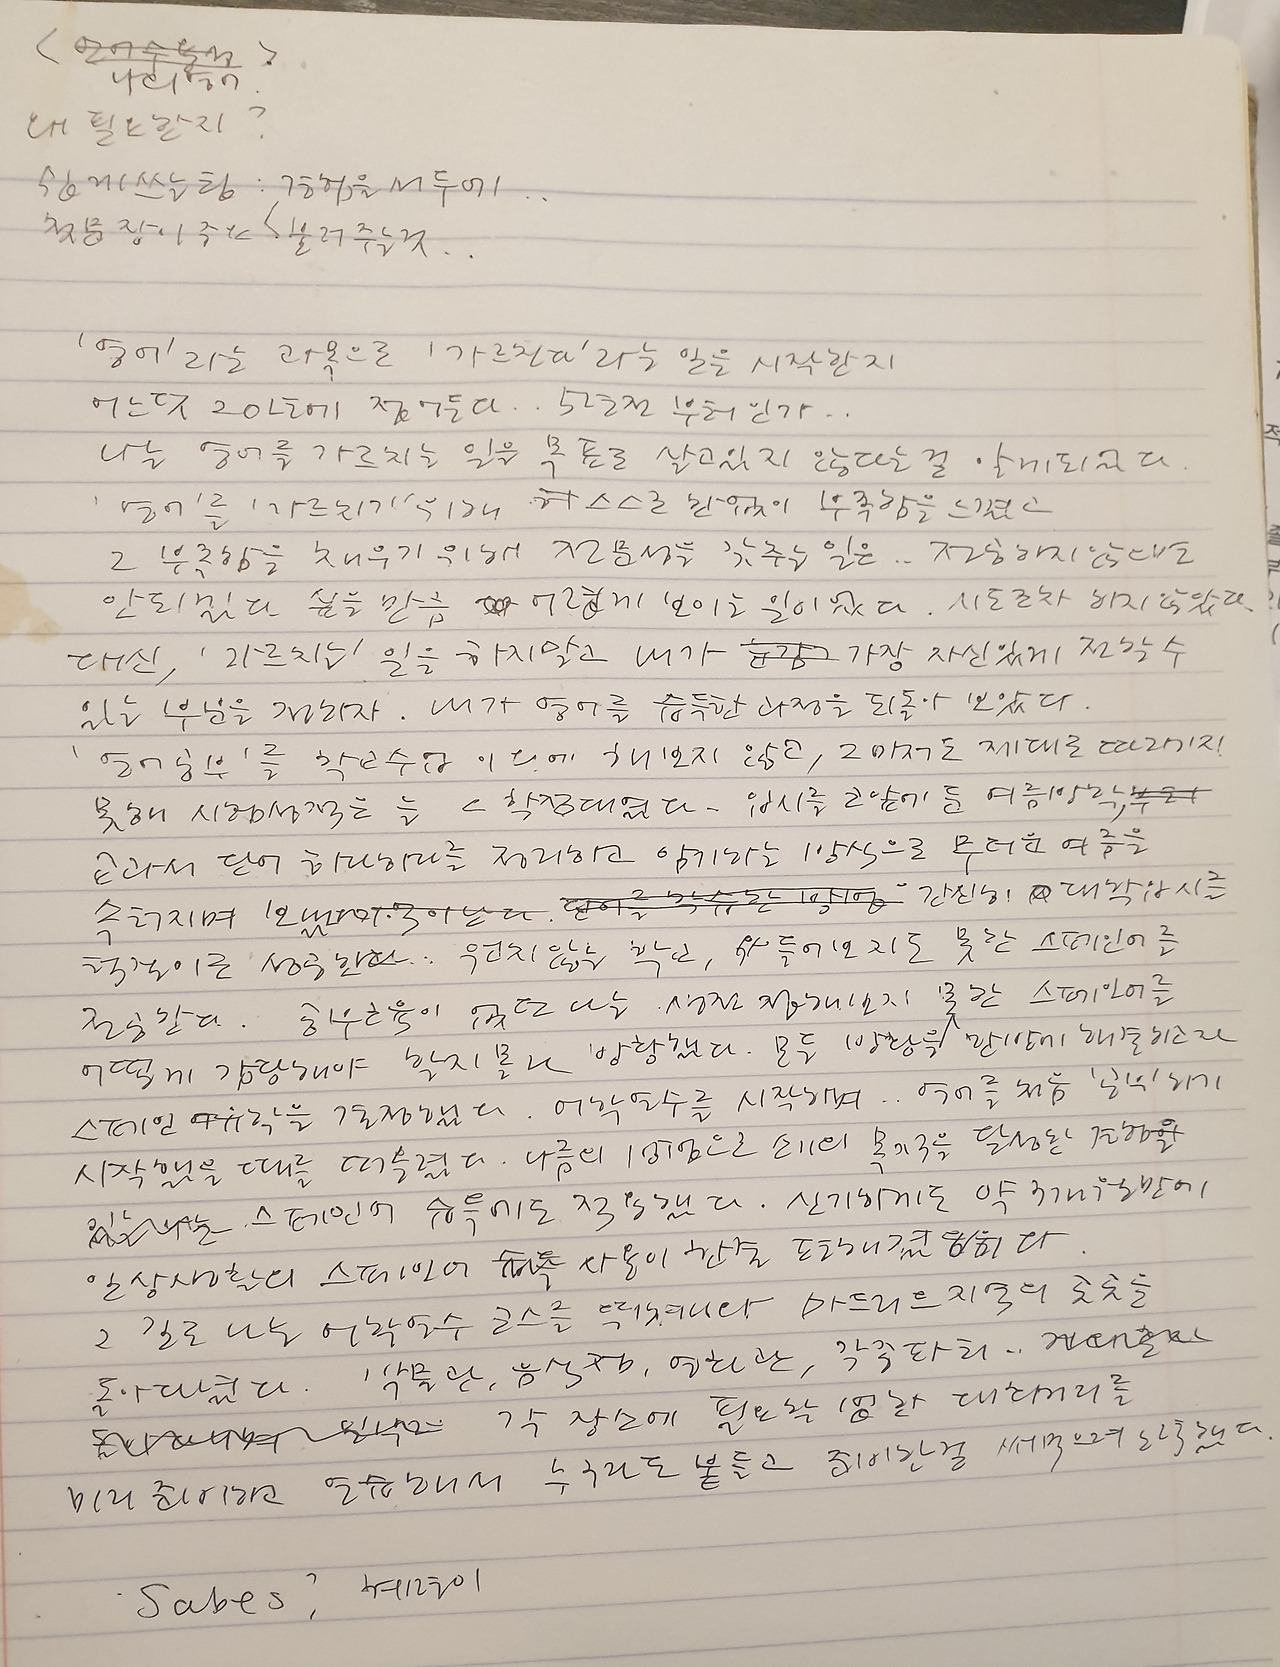 < 언어수필성 >
나의영어
왜 필요한지?
쉽게쓰는팁 : 경험을 서두에..
첫문장이 주는 불러주는것..
'영어'라는 과목으로 '가르친다'라는 일을 시작한지
어느덧 20년에 접어든다.. 5년전 부터인가..
나는 영어를 가르치는 일을 목표로 살고있지 않다는걸 알게되었다.
'영어'를 '가르치기'위해 스스로 한없이 부족함을 느꼈고
그 부족함을 채우기 위해 전문성을 갖추는 일은.. 전공하지않고는
안되겠다 싶을 만큼 어렵게 보이는 일이었다. 시도조차 하지않았다.
대신, '가르치는' 일을 하지말고 내가 가장 자신있게 전할 수
있는 부분을 전하자. 내가 영어를 습득한 과정을 되돌아 보았다.
'영어공부'를 학교수업 이외에 해보지 않고, 그마저도 제대로 따라가지
못해 시험성적은 늘 하점대였다. 입시를 코앞에 둔 여름방학,
교과서 단어 하나하나를 정리하고 암기하는 방식으로 무더운 여름을
간신히 대학입시를
턱걸이로 성공한다.. 원치않는 학교, 들어보지도 못한 스페인어를
전공한다. 공부습관이 없던 나는 생전 접해보지 못한 스페인어를
어떻게 감당해야 할지 몰라 방황했다. 모든 방황을 한번에 해결하고자
스페인 유학을 결정했다. 어학연수를 시작하며.. 영어를 처음 '공부'하기
시작했을 때를 떠올렸다. 나름의 방법으로 소기의 목적을 달성한 경험을
스페인어 습득에도 적용했다. 신기하게도 약 3개월만에
일상생활의 스페인어 사용이 한결 편해졌다.
그 길로 나는 어학연수 코스를 때려치우고 마드리드 지역의 곳곳을
돌아다녔다. 박물관, 음식점, 영화관, 각종파티..
각 장소에 필요한 법한 대화거리를
미리 준비하고 연습해서 누구라도 붙들고 준비한걸 써먹으려 노력했다.
Sabes?